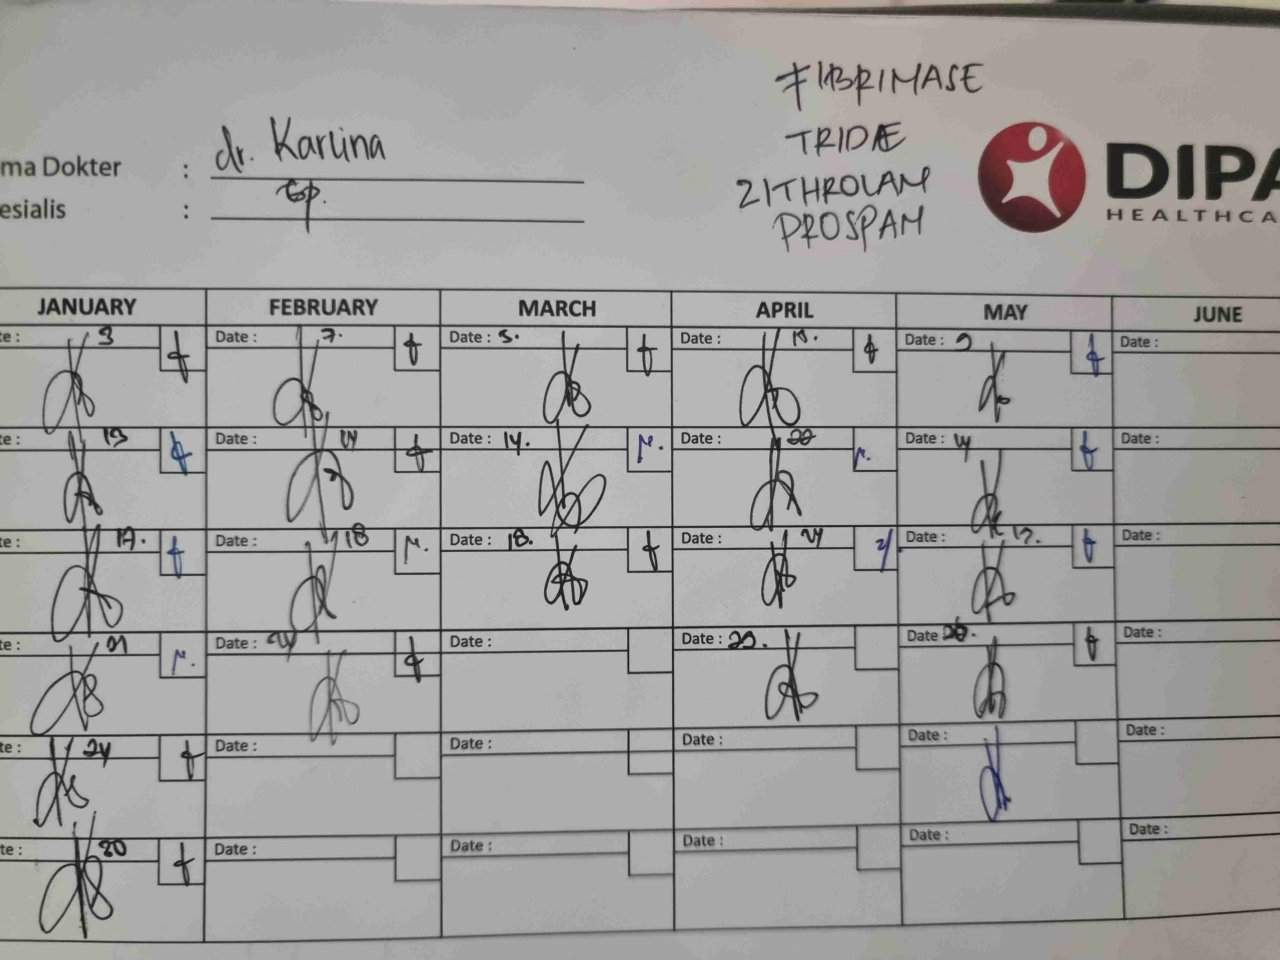 FIBRIMASE
TRIDÆ
ZITHROLAM
PROSPAM
ma Dokter : dr. Karlina
esialis : Gp.
DIPA
HEALTHCA
JANUARY FEBRUARY MARCH APRIL MAY JUNE
te: 3 Date: 7. Date: 5. Date: Date: 2 Date:
te: 13 Date: 14 Date: 14. Date: 22 Date: 14 Date:
te: 17. Date: 18 Date: 18. Date: 24 Date: 17. Date:
te: 21 Date: 24 Date: Date: 29. Date: Date:
te: 24 Date: Date: Date: Date: Date:
te: 30 Date: Date: Date: Date: Date: